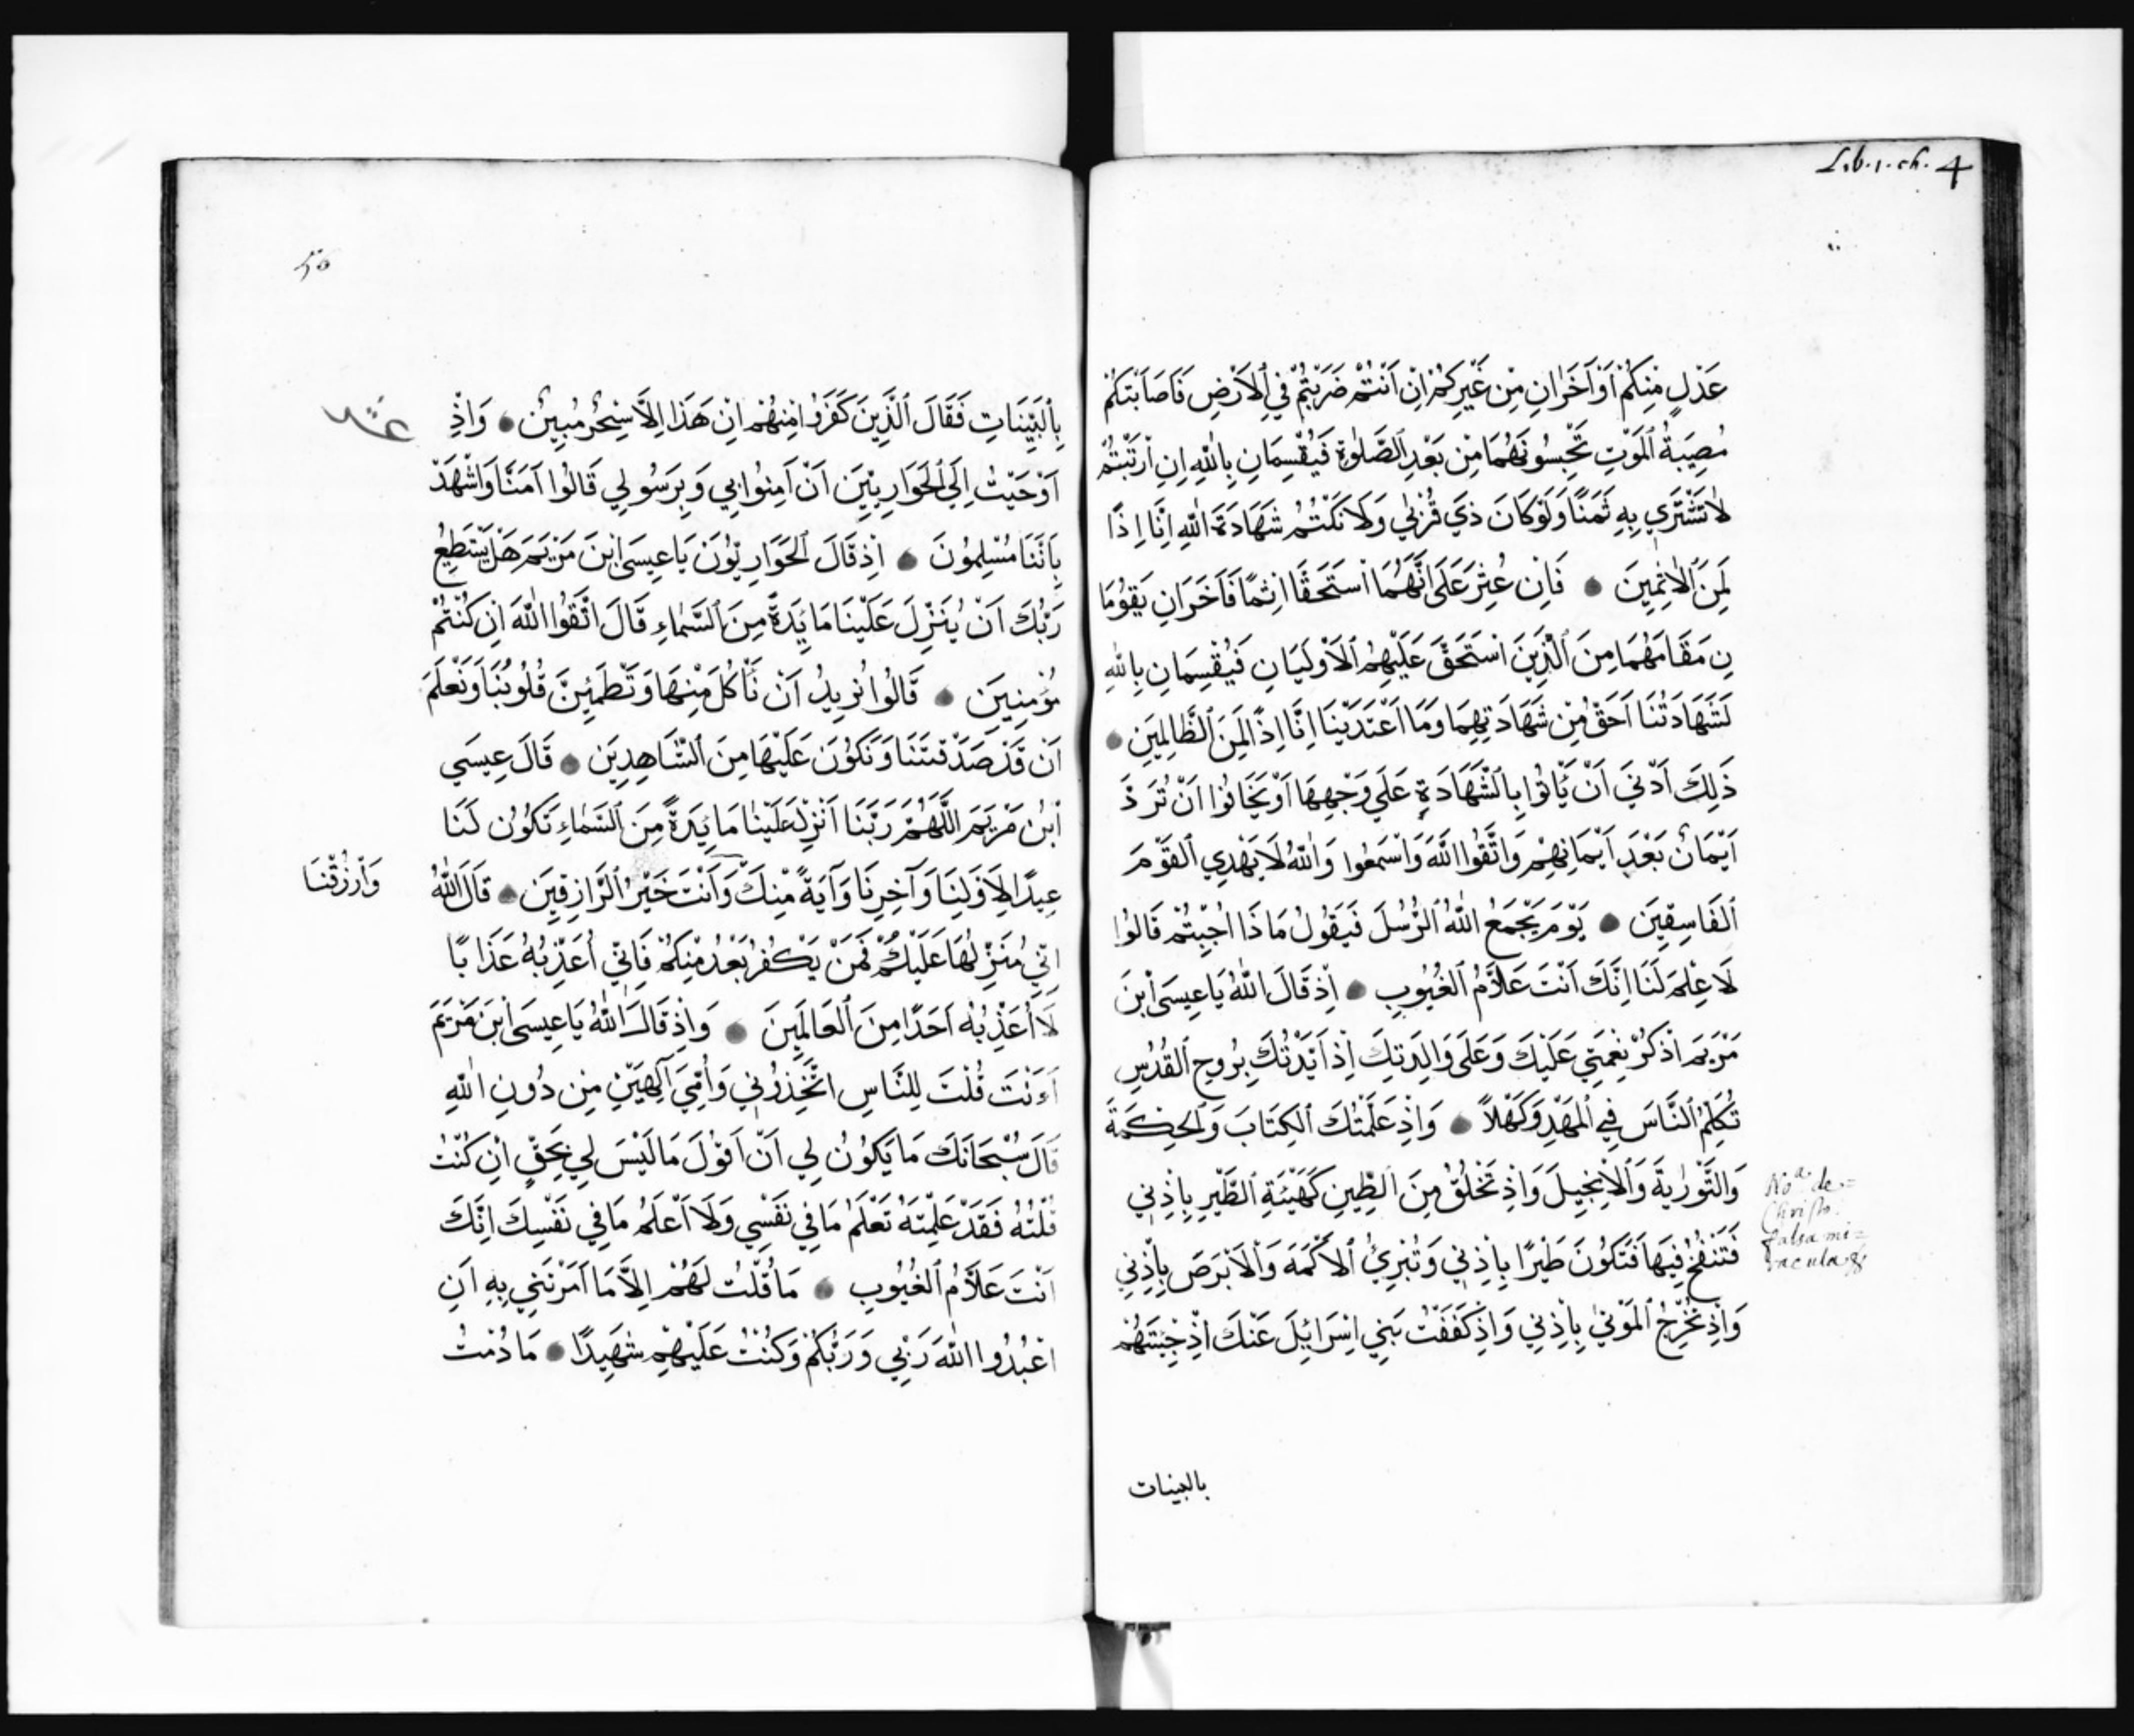 Lib. 1. ch. 4
عَدْلٍ مِنْكُمْ أَوْ آخَرَانِ مِنْ غَيْرِكُمْ اِنْ اَنْتُمْ ضَرَبْتُمْ فِي الْاَرْضِ فَاَصَابَتْكُمْ
مُصِيبَةُ الْمَوْتِ تَحْبِسُونَهُمَا مِنْ بَعْدِ الصَّلٰوةِ فَيُقْسِمَانِ بِاللّٰهِ اِنِ ارْتَبْتُمْ
لَا نَشْتَرِي بِهِ ثَمَنًا وَلَوْ كَانَ ذِي قُرْبٰي وَلَا نَكْتُمُ شَهَادَةَ اللّٰهِ اِنَّا اِذًا
لَمِنَ الْاٰثِمِينَ ● فَاِنْ عُثِرَ عَلَى اَنَّهُمَا اسْتَحَقَّا اِثْمًا فَآخَرَانِ يَقُومَا
نِ مَقَامَهُمَا مِنَ الَّذِينَ اسْتَحَقَّ عَلَيْهِمُ الْاَوْلَيَانِ فَيُقْسِمَانِ بِاللّٰهِ
لَشَهَادَتُنَا اَحَقُّ مِنْ شَهَادَتِهِمَا وَمَا اعْتَدَيْنَا اِنَّا اِذًا لَمِنَ الظَّالِمِينَ ●
ذَلِكَ اَدْنَي اَنْ يَأْتُوا بِالشَّهَادَةِ عَلَي وَجْهِهَا اَوْ يَخَافُوا اَنْ تُرَدَّ
اَيْمَانٌ بَعْدَ اَيْمَانِهِمْ وَاتَّقُوا اللّٰهَ وَاسْمَعُوا وَاللّٰهُ لَا يَهْدِي الْقَوْمَ
الْفَاسِقِينَ ● يَوْمَ يَجْمَعُ اللّٰهُ الرُّسُلَ فَيَقُولُ مَاذَا اُجِبْتُمْ قَالُوا
لَا عِلْمَ لَنَا اِنَّكَ اَنْتَ عَلَّامُ الْغُيُوبِ ● اِذْ قَالَ اللّٰهُ يَا عِيسَى ابْنَ
مَرْيَمَ اذْكُرْ نِعْمَتِي عَلَيْكَ وَعَلَى وَالِدَتِكَ اِذْ اَيَّدْتُكَ بِرُوحِ الْقُدُسِ
تُكَلِّمُ النَّاسَ فِي الْمَهْدِ وَكَهْلاً ● وَاِذْ عَلَّمْتُكَ الْكِتَابَ وَالْحِكْمَةَ
وَالتَّوْرٰيةَ وَالْاِنْجِيلَ وَاِذْ تَخْلُقُ مِنَ الطِّينِ كَهَيْئَةِ الطَّيْرِ بِاِذْنِي
فَتَنْفُخُ فِيهَا فَتَكُونُ طَيْرًا بِاِذْنِي وَتُبْرِئُ الْاَكْمَهَ وَالْاَبْرَصَ بِاِذْنِي
وَاِذْ تُخْرِجُ الْمَوْتٰي بِاِذْنِي وَاِذْ كَفَفْتُ بَنِي اِسْرَائِلَ عَنْكَ اِذْ جِئْتَهُمْ
Noª. de
Christo.
falsa mi=
racula
بالبينات
50
بِالْبَيِّنَاتِ فَقَالَ الَّذِينَ كَفَرُوا مِنْهُمْ اِنْ هَذَا اِلَّا سِحْرٌ مُبِينٌ ● وَاِذْ
اَوْحَيْتُ اِلَي الْحَوَارِيِّينَ اَنْ آمِنُوا بِي وَبِرَسُولِي قَالُوا آمَنَّا وَاشْهَدْ
بِاَنَّنَا مُسْلِمُونَ ● اِذْ قَالَ الْحَوَارِيُّونَ يَا عِيسَى ابْنَ مَرْيَمَ هَلْ يَسْتَطِعُ
رَبُّكَ اَنْ يُنَزِّلَ عَلَيْنَا مَائِدَةً مِنَ السَّمَاءِ قَالَ اتَّقُوا اللّٰهَ اِنْ كُنْتُمْ
مُؤْمِنِينَ ● قَالُوا نُرِيدُ اَنْ نَأْكُلَ مِنْهَا وَتَطْمَئِنَّ قُلُوبُنَا وَنَعْلَمَ
اَنْ قَدْ صَدَقْتَنَا وَنَكُونَ عَلَيْهَا مِنَ الشَّاهِدِينَ ● قَالَ عِيسَي
ابْنُ مَرْيَمَ اللَّهُمَّ رَبَّنَا اَنْزِلْ عَلَيْنَا مَائِدَةً مِنَ السَّمَاءِ تَكُونُ لَنَا
عِيدًا لِاَوَّلِنَا وَآخِرِنَا وَآيَةً مِنْكَ وَاَنْتَ خَيْرُ الرَّازِقِينَ ● قَالَ اللّٰهُ
وَارْزُقْنَا
اِنِّي مُنَزِّلُهَا عَلَيْكُمْ فَمَنْ يَكْفُرْ بَعْدُ مِنْكُمْ فَاِنِّي اُعَذِّبُهُ عَذَابًا
لَا اُعَذِّبُهُ اَحَدًا مِنَ الْعَالَمِينَ ● وَاِذْ قَالَ اللّٰهُ يَا عِيسَى ابْنَ مَرْيَمَ
ءَاَنْتَ قُلْتَ لِلنَّاسِ اتَّخِذُونِي وَاُمِّيَ اِلٰهَيْنِ مِنْ دُونِ اللّٰهِ
قَالَ سُبْحَانَكَ مَا يَكُونُ لِي اَنْ اَقُولَ مَا لَيْسَ لِي بِحَقٍّ اِنْ كُنْتُ
قُلْتُهُ فَقَدْ عَلِمْتَهُ تَعْلَمُ مَا فِي نَفْسِي وَلَا اَعْلَمُ مَا فِي نَفْسِكَ اِنَّكَ
اَنْتَ عَلَّامُ الْغُيُوبِ ● مَا قُلْتُ لَهُمْ اِلَّا مَا اَمَرْتَنِي بِهِ اَنِ
اعْبُدُوا اللّٰهَ رَبِّي وَرَبَّكُمْ وَكُنْتُ عَلَيْهِمْ شَهِيدًا ● مَا دُمْتُ